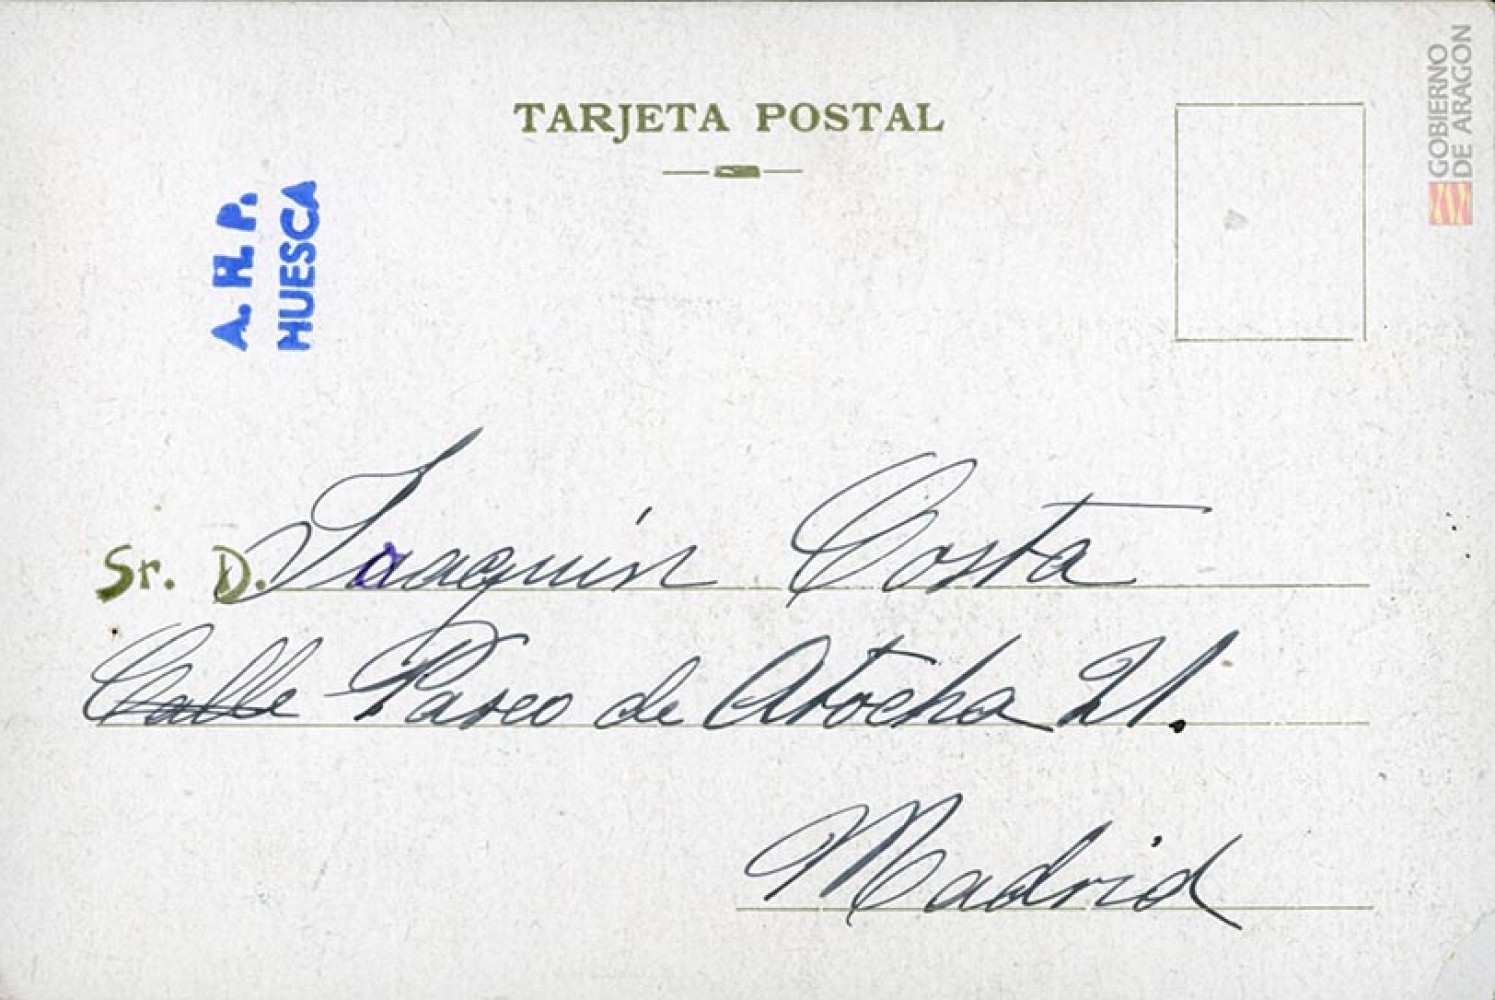 TARJETA POSTAL
GOBIERNO
DE ARAGON
A. H. P.
HUESCA
Sr. D. Joaquín Costa
Calle Paseo de Atocha 21.
Madrid